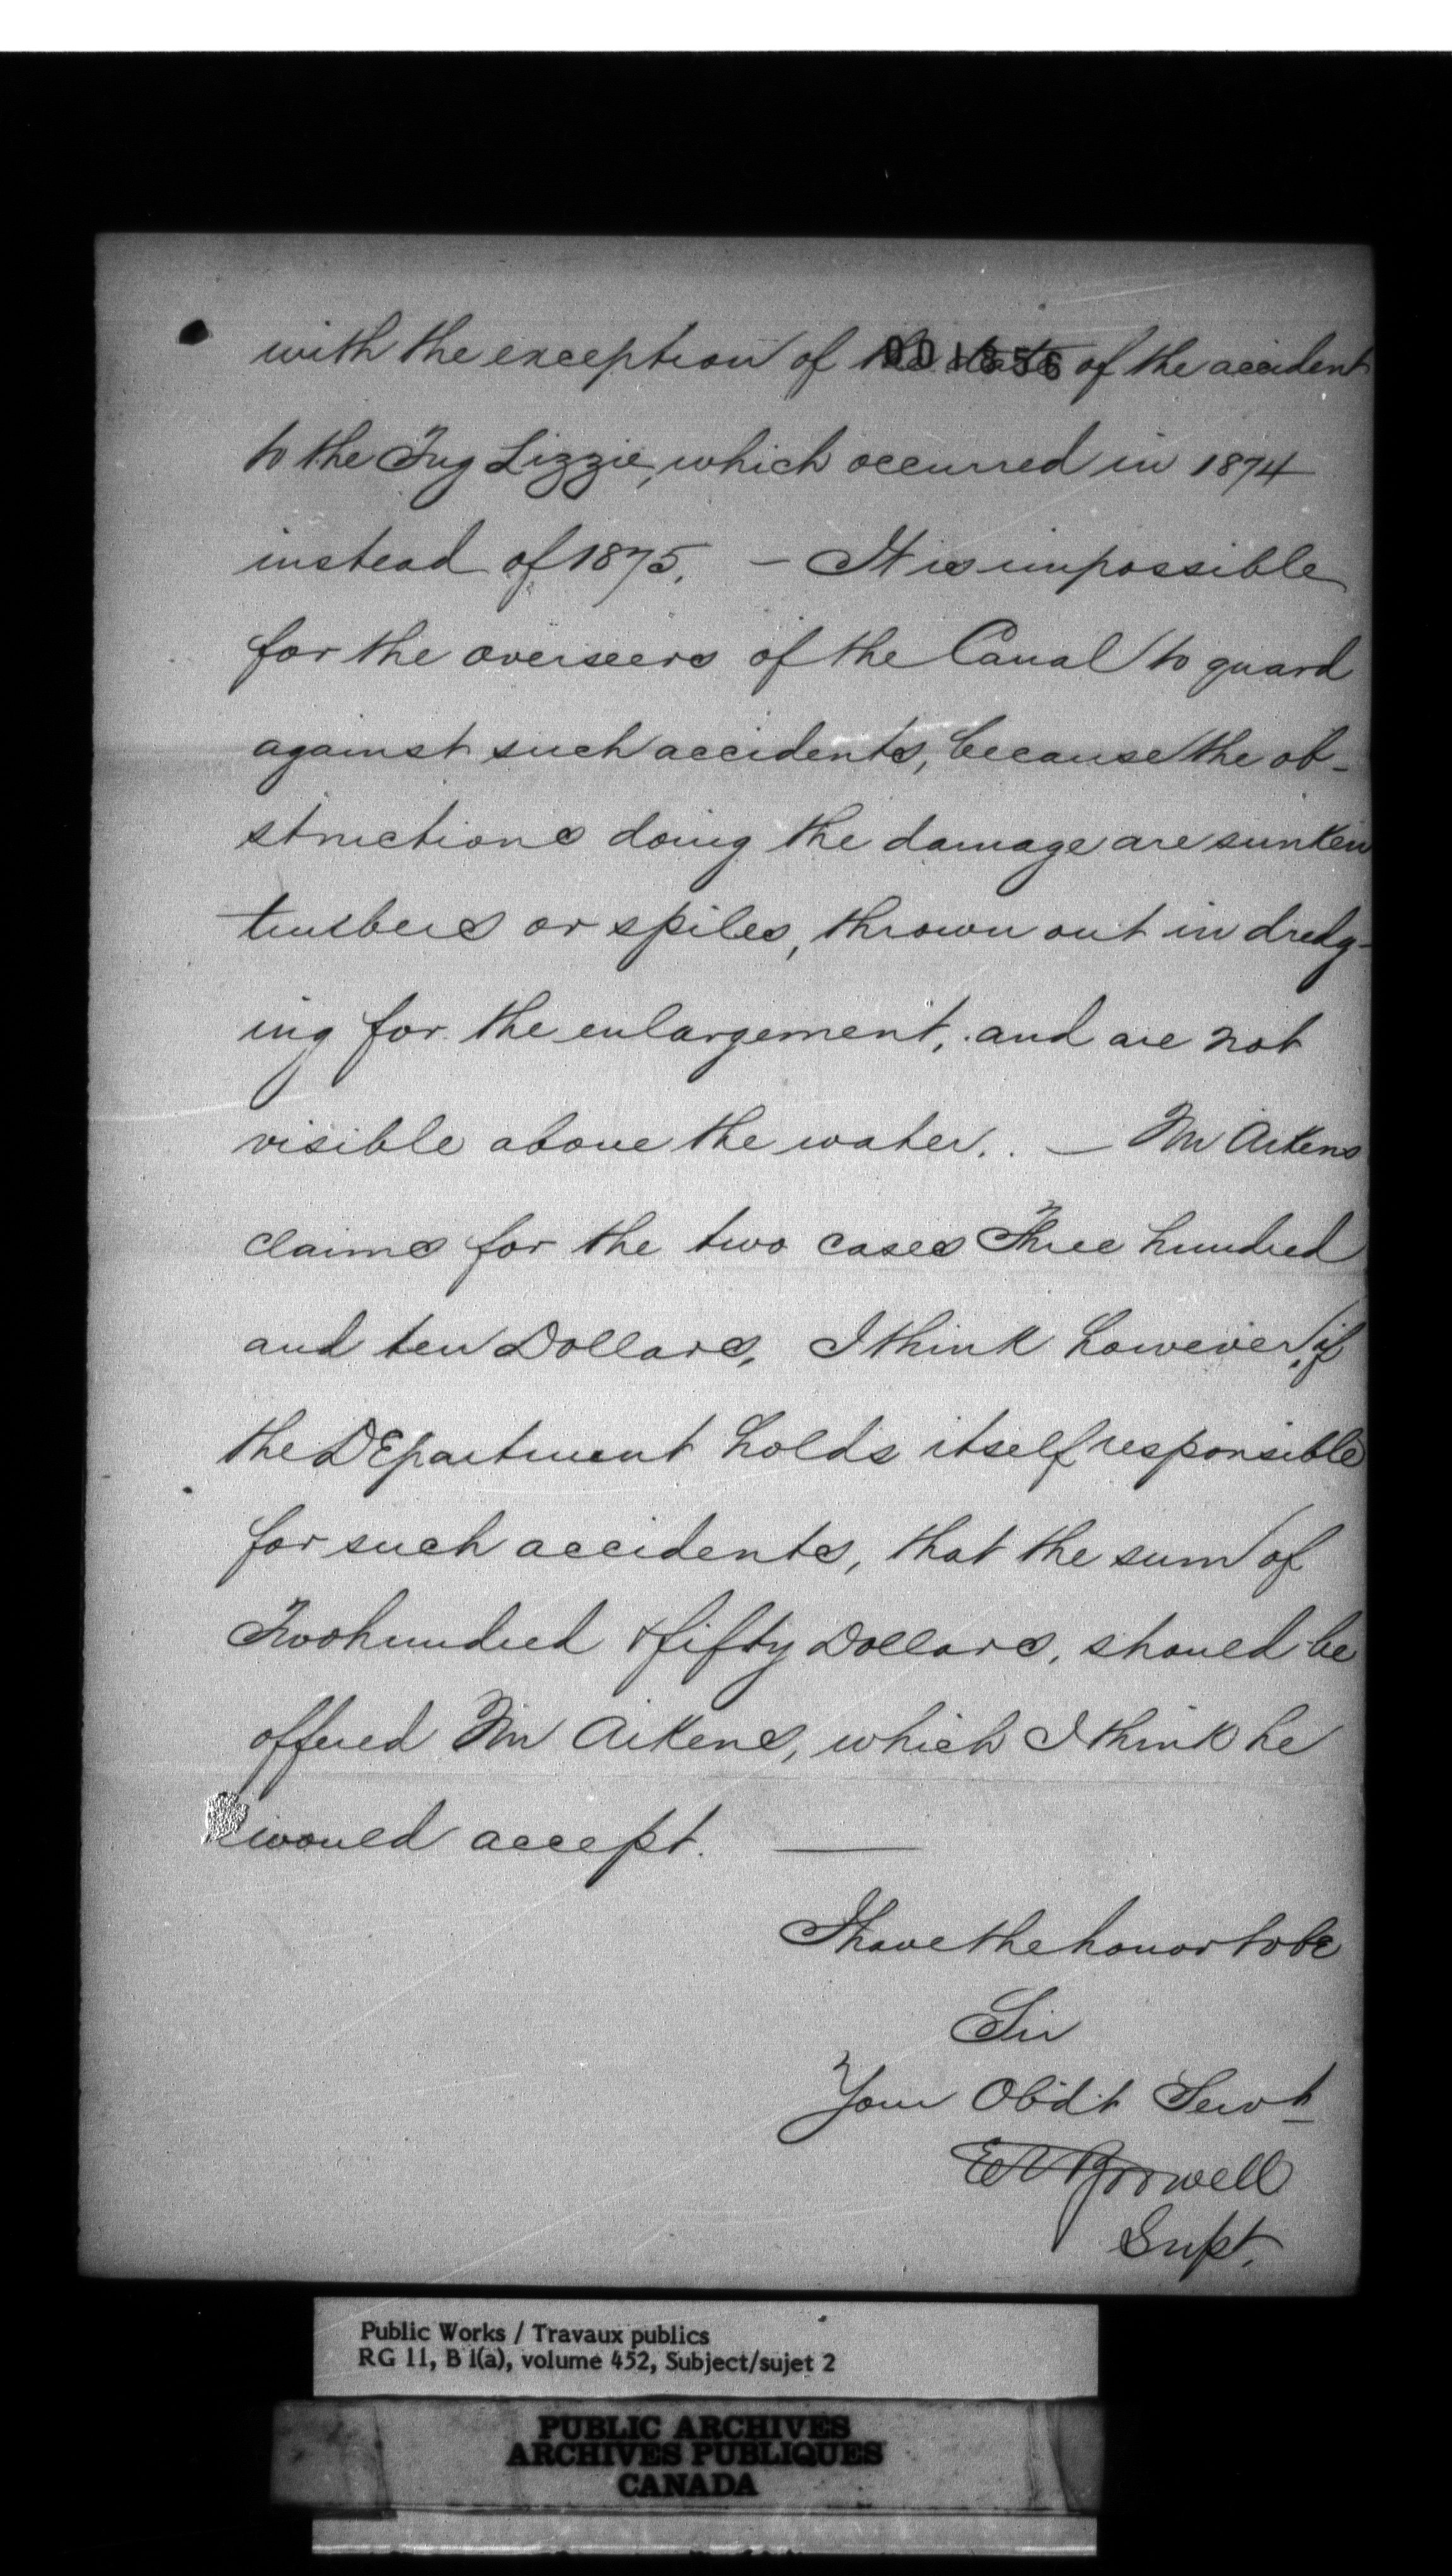 001856
with the exception of the date of the accident
to the Tug Lizzie, which occurred in 1874
instead of 1875. — It is impossible
for the overseers of the Canal to guard
against such accidents, because the ob-
structions doing the damage are sunken
timbers or spiles, thrown out in dredg-
ing for the enlargement, and are not
visible above the water. — Mr Aikens
claims for the two cases Three hundred
and ten Dollars, I think however, if
the DEpartment holds itself responsible
for such accidents, that the sum of
Two hundred & fifty Dollars, should be
offered Mr Aikens, which I think he
would accept. —
I have the honor to be
Sir
Your Obdt Servt
Supt.
Public Works / Travaux publics
RG 11, B 1(a), volume 452, Subject/sujet 2
PUBLIC ARCHIVES
ARCHIVES PUBLIQUES
CANADA